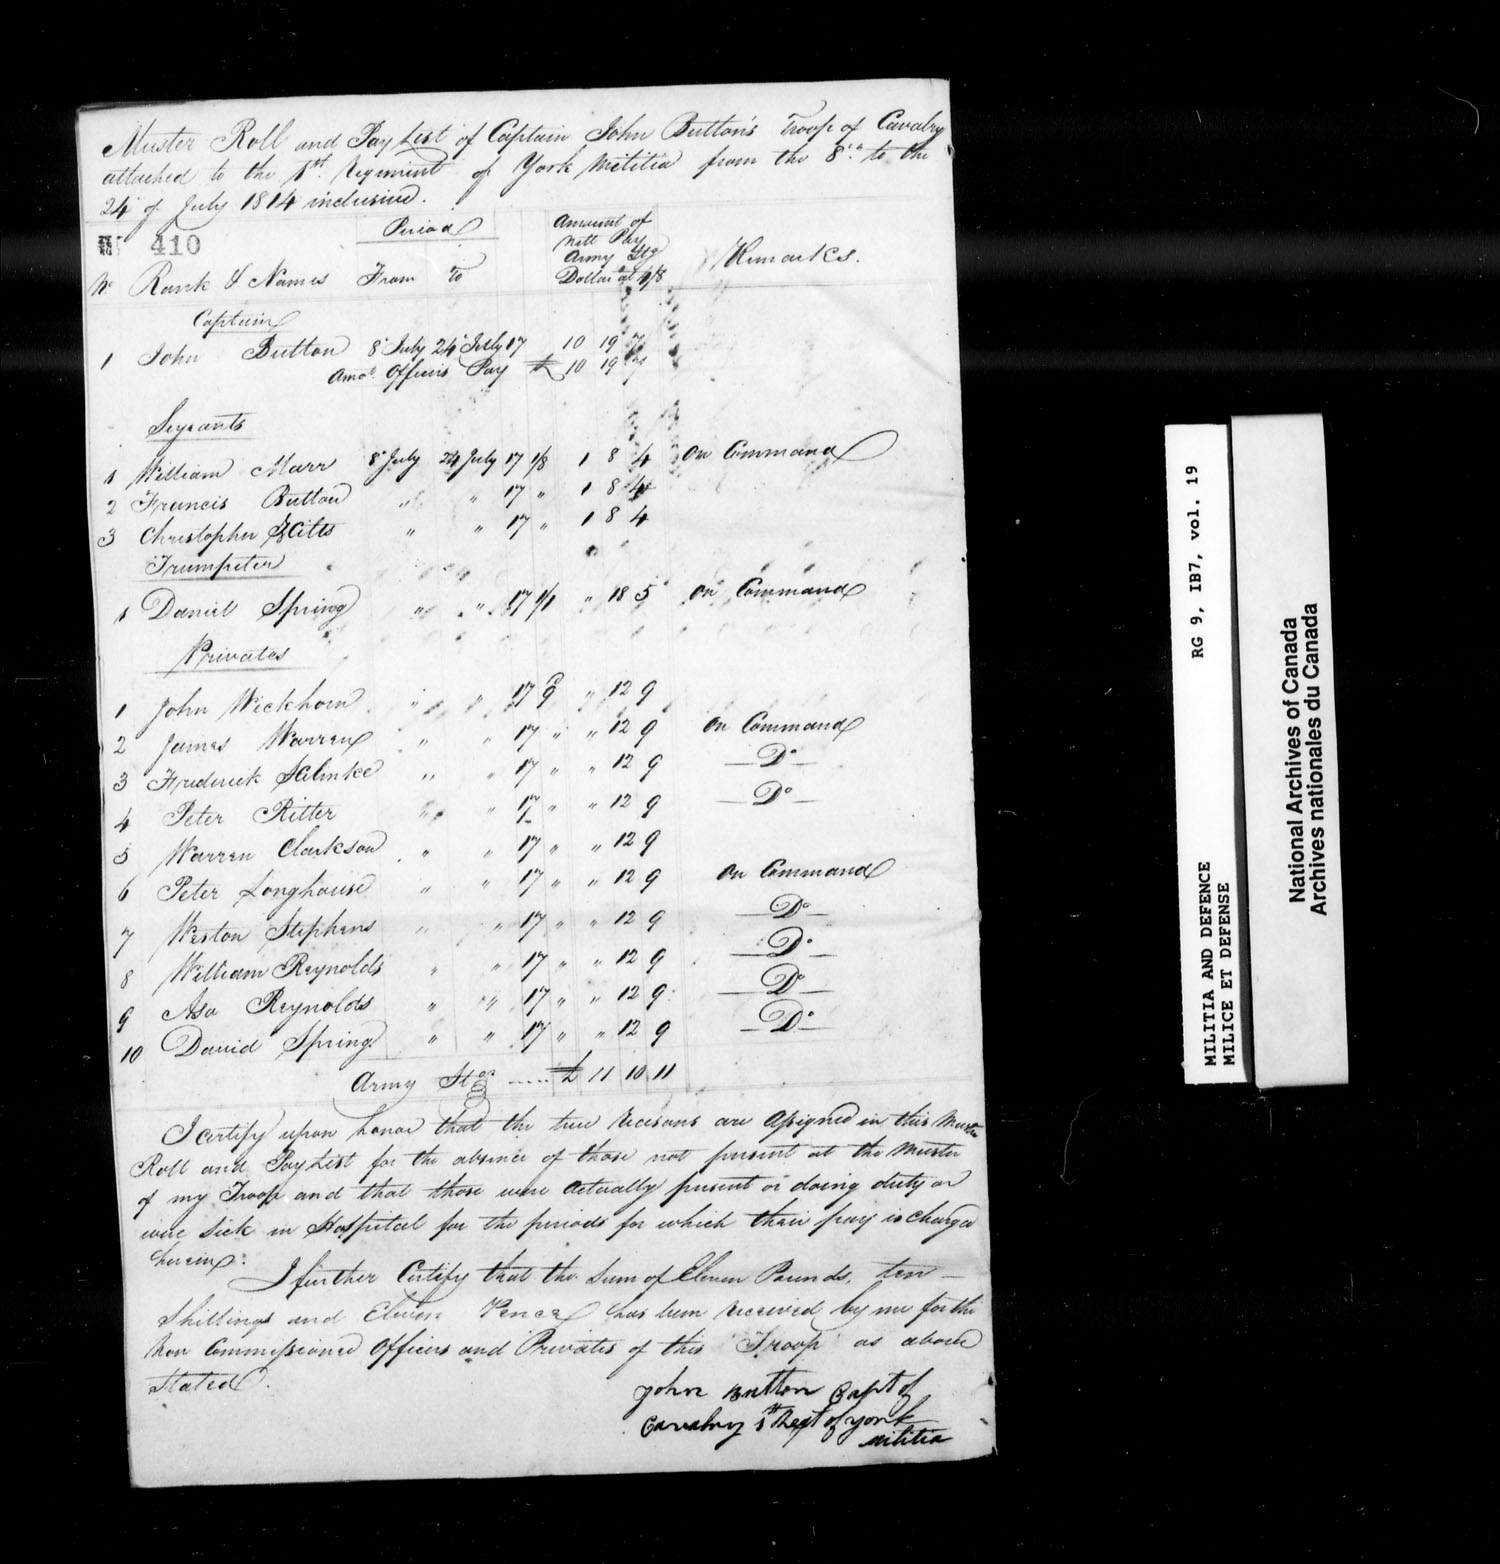 Muster Roll and Pay List of Captain John Button's Troop of Cavalry
attached to the 1st Regiment of York Militia from the 8th to the
24 of July 1814 inclusive.
410
No Rank & Names Period From to Amount of Nett Pay Army Stg Dollar at 4/8 Remarks.
Captain
1 John Button 8 July 24 July 17 10 19 7
Amot Officers Pay £ 10 19 7
Serjeants
1 William Marr 8 July 24 July 17 1/8 1 8 4 on Command
2 Francis Button " " 17 " 1 8 4
3 Christopher " " 17 " 1 8 4
Trumpeter
1 Daniel Spring " " 17 1/1 " 18 5 on Command
Privates
1 John Wickhom " " 17 9 " 12 9
2 James Warren " " 17 " " 12 9 on Command
3 Frederick " " 17 " " 12 9 —Do—
4 Peter Ritter " " 17 " " 12 9 —Do—
5 Warren Clarkson " " 17 " " 12 9
6 Peter Longhouse " " 17 " " 12 9 on Command
7 Weston Stephens " " 17 " " 12 9 —Do—
8 William Reynolds " " 17 " " 12 9 —Do—
9 Asa Reynolds " " 17 " " 12 9 —Do—
10 David Spring " " 17 " " 12 9 —Do—
Army Stg ..... £ 11 10 11
I certify upon honor that the true reasons are assigned in this Muster
Roll and Pay List for the absence of those not present at the Muster
of my Troop and that those were actually present or doing duty or
were sick in Hospital for the periods for which their pay is charged
herein:
I further Certify that the Sum of Eleven Pounds, ten
Shillings and Eleven Pence has been received by me for the
Non Commissioned Officers and Privates of this Troop as above
Stated.
John Button Capt of
Cavalry 1st Regt of York
Militia
MILITIA AND DEFENCE RG 9, IB7, vol. 19
MILICE ET DEFENSE
National Archives of Canada
Archives nationales du Canada